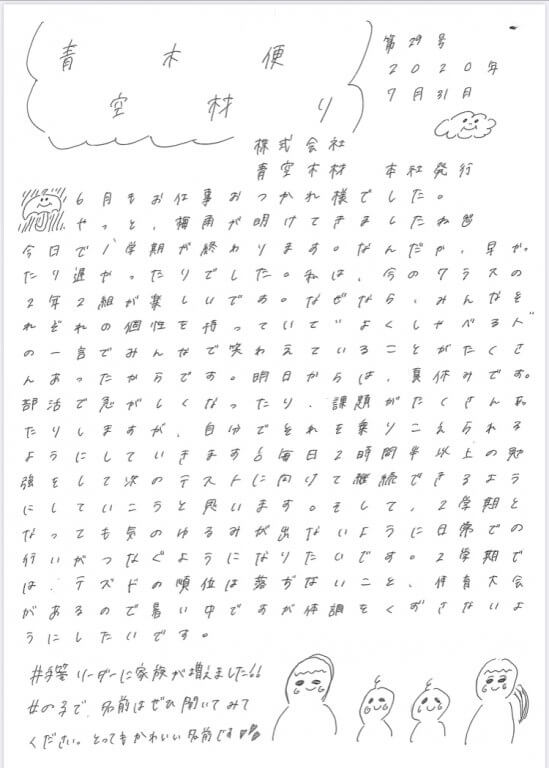 青空木材便り
第29号
2020年
7月31日
株式会社
青空木材 本社発行
6月もお仕事おつかれ様でした。
やっと、梅雨が明けてきましたね
今日で1学期が終わります。なんだか、早か。
たり遅かったりでした。私は、今のクラスの
2年2組が楽しいです。なぜなら、みんなそ
れぞれの個性を持っていて"よくしゃべる人"
の一言でみんなで笑わえていることがたくさ
んあったからです。明日からは、夏休みです。
部活で忙がしくなったり、課題がたくさんあ
たりしますが、自分でそれを乗りこえられる
ようにしていきます 毎日2時間半以上の勉
強をして次のテストに向けて継続できるよう
にしていこうと思います。そして、2学期と
なっても気のゆるみが出ないように日常での
行いがつなぐようになりたいです。2学期で
は、テストの順位は落ちないこと、体育大会
があるので暑い中ですが体調をくずさないよ
うにしたいです。
リーダーに家族が増えました
女の子で、名前はぜひ聞いてみて
ください。とってもかわいい名前です